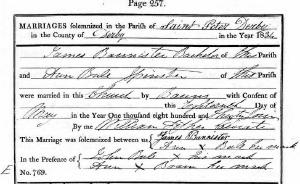 Page 257.
MARRIAGES solemnized in the Parish of Saint Peter Derby
in the County of Derby in the Year 1834
James Bannister Bachelor of this Parish
and Ann Bule Spinster of this Parish
were married in this Church by Banns with Consent of
this Day of
May in the Year One thousand eight hundred and
By me William Curate
This Marriage was solemnized between us James Bannister
Ann X Bule her mark
In the Presence of John Bule X his mark
Ann X her mark
E No. 769.